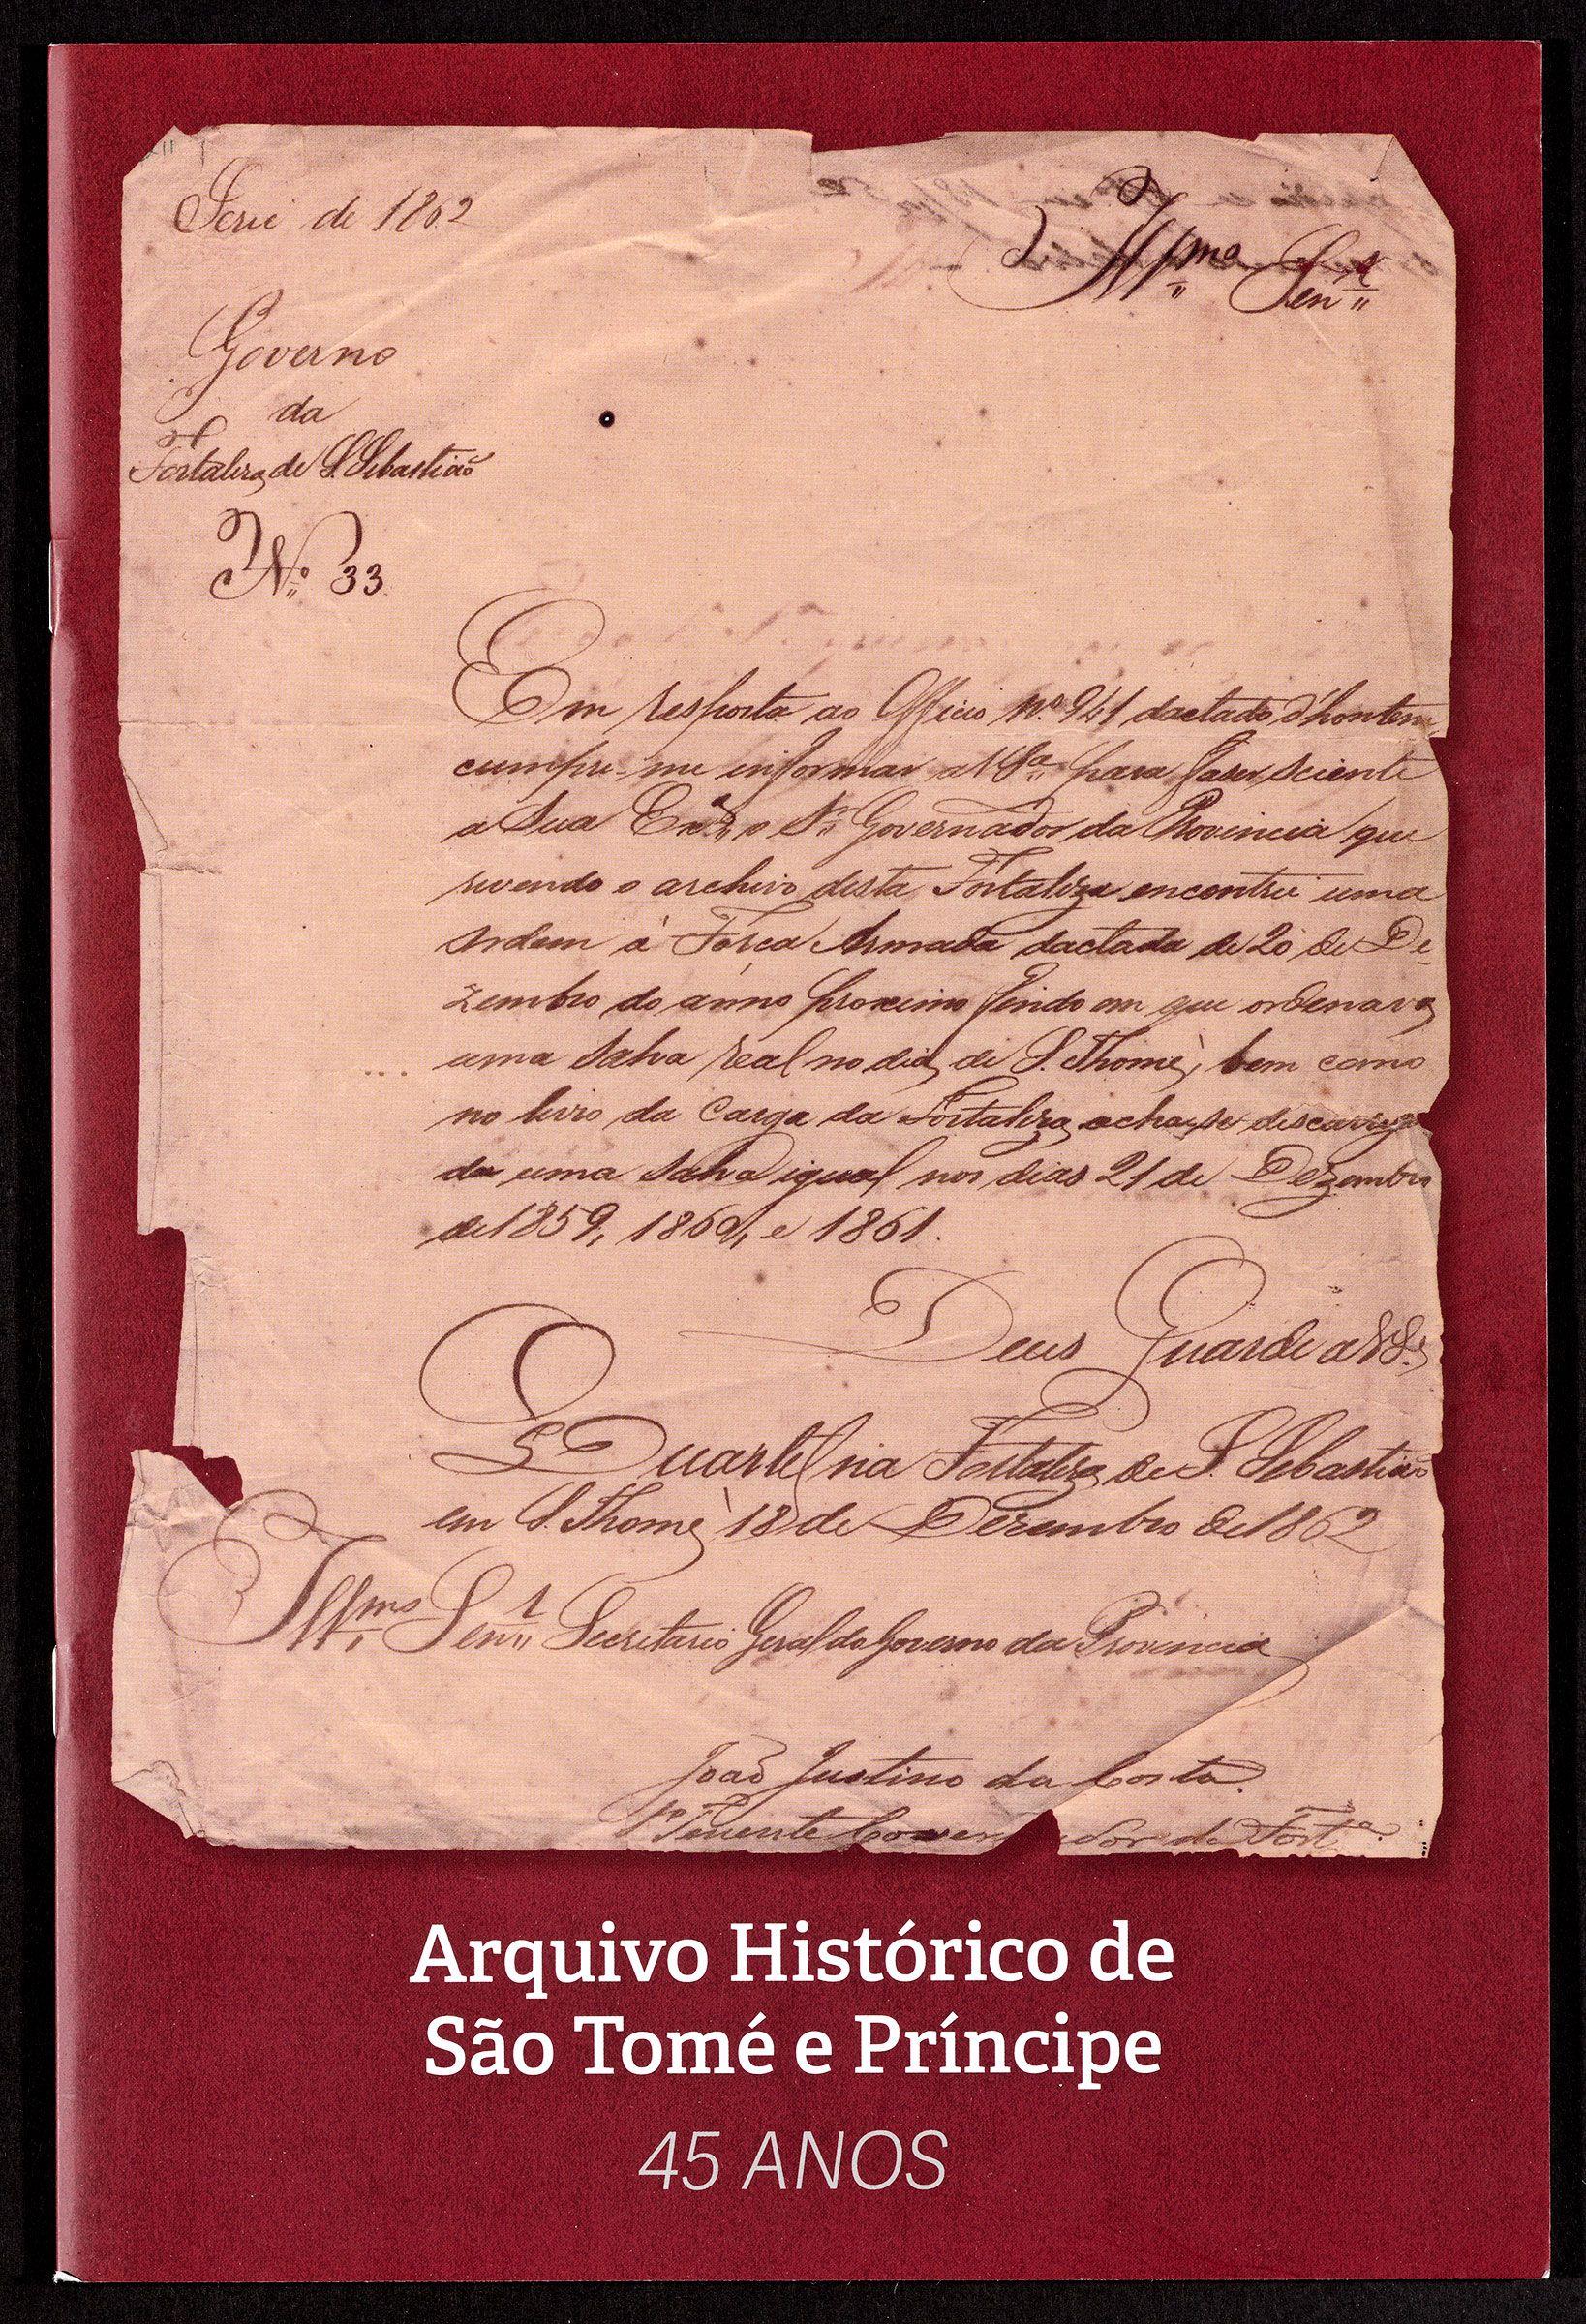 Serie de 1862
Illmo Senr
Governo
da
Fortaleza de S. Sebastião
No. 33
Em resposta ao Officio No. 941 dactado d'hontem
cumpre-me informar a VSa para faser sciente
a Sua Exa o Sr Governador da Provincia que
revendo o archivo desta Fortaleza encontrei uma
ordem à Força Armada dactada de 20 de De-
zembro do anno proximo findo em que ordenava
uma salva real no dia de S. Thomè, bem como
no livro da Carga da Fortaleza acha-se descarrega
da uma salva igual nos dias 21 de Dezembro
de 1859, 1860, e 1861.
Deus Guarde a VSa
Quartel na Fortaleza de S. Sebastião
em S. Thomè 18 de Dezembro de 1862
Illmo Senr Secretario Geral do Governo da Provincia
João Justino da Costa
1o Tenente Governador da Forta.
Arquivo Histórico de
São Tomé e Príncipe
45 ANOS